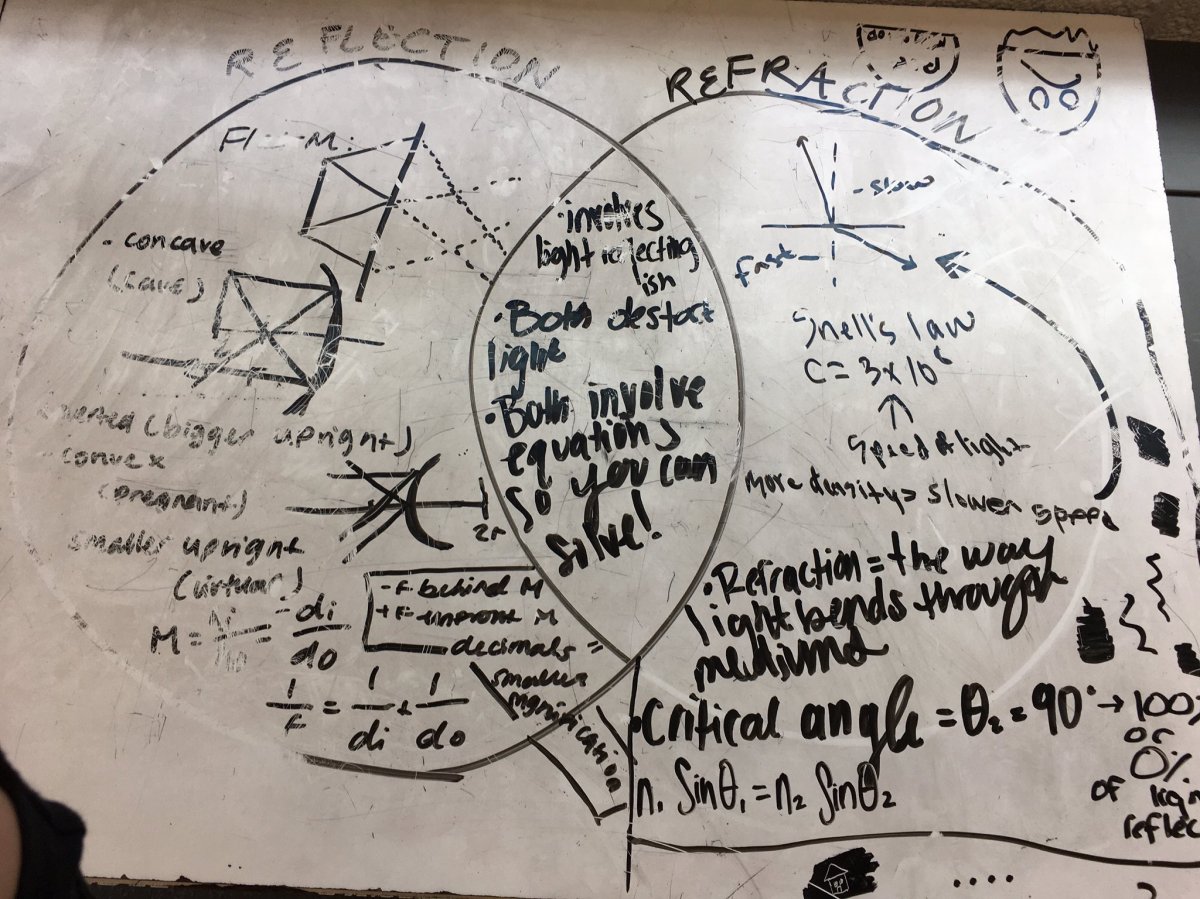 REFLECTION
M:
• concave
(cave)
(bigger upright)
- convex
(pregnant)
smaller upright
(virtual)
2r
- F behind M
+ F infront M
decimals =
smaller
magnification
M = = - di
do
1/F = 1/di + 1/do
• involves
light reflecting
ish
• Both destort
light
• Both involve
equations
so you can
solve!
REFRACTION
- slow
fast -
Snell's law
C = 3x10
↑
speed of light
More density = slower speed
• Refraction = the way
light bends through
mediums
• Critical angle = θ₂ = 90° → 100%
or
0%
of light
reflec
n₁ Sinθ₁ = n₂ Sinθ₂
....